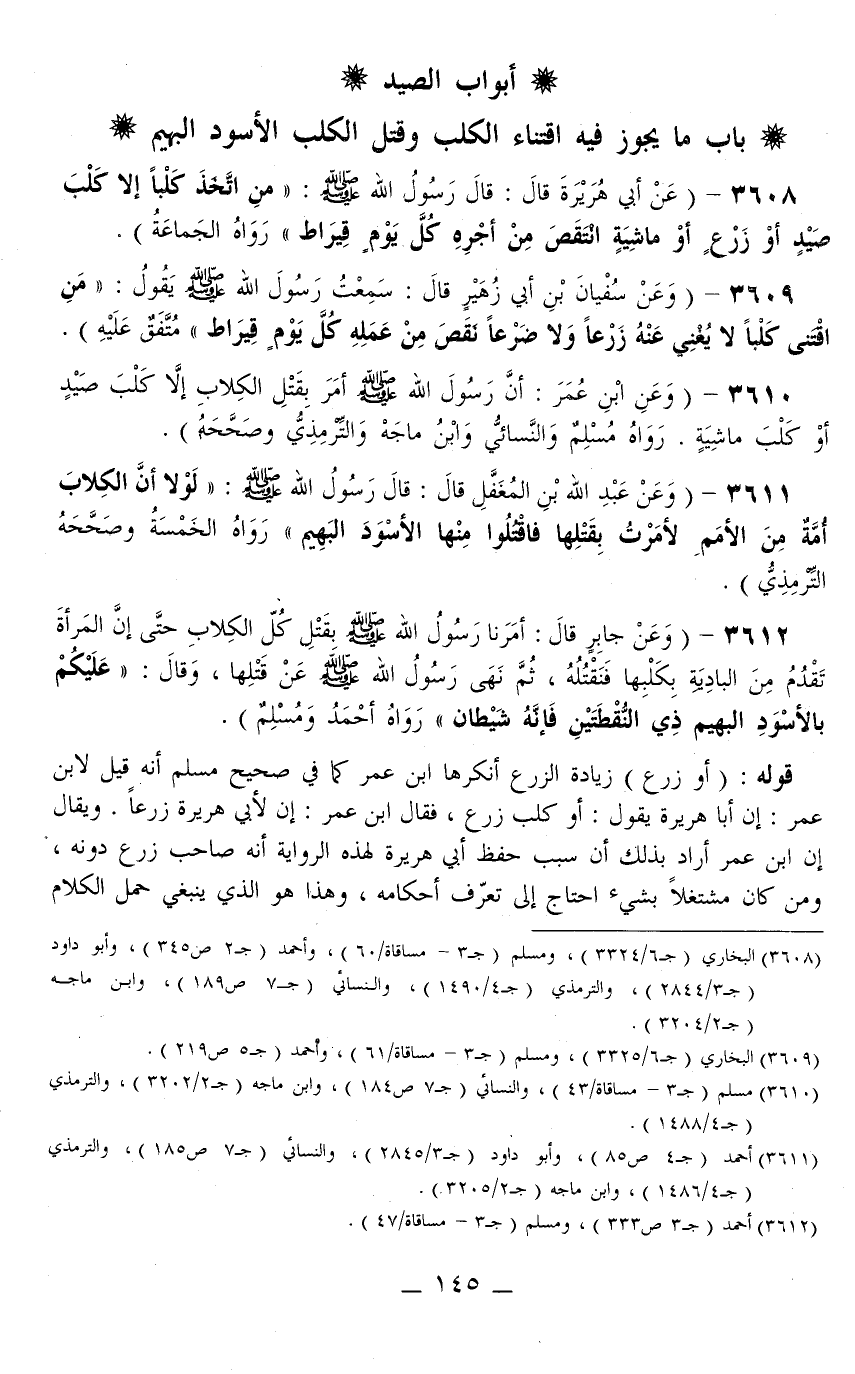 ❋ أبواب الصيد ❋
❋ باب ما يجوز فيه اقتناء الكلب وقتل الكلب الأسود البهيم ❋
٣٦٠٨ – ( عَنْ أبي هُرَيْرَةَ قالَ : قالَ رَسُولُ الله ﷺ : « منِ اتَّخَذَ كَلْباً إلا كَلْبَ
صَيْدٍ أوْ زَرْعٍ أوْ ماشِيَةٍ انْتَقَصَ مِنْ أجْرِهِ كُلَّ يَوْمٍ قِيرَاط » رَوَاهُ الجَماعَةُ ) .
٣٦٠٩ – ( وَعَنْ سُفْيانَ بْنِ أبي زُهَيْرٍ قالَ : سَمِعْتُ رَسُولَ الله ﷺ يَقُولُ : « مَنِ
اقْتَنى كَلْباً لا يُغْنِي عَنْهُ زَرْعاً وَلا ضَرْعاً نَقَصَ مِنْ عَمَلِهِ كُلَّ يَوْمٍ قِيرَاط » مُتَّفَقٌ عَلَيْهِ ) .
٣٦١٠ – ( وَعَنِ ابْنِ عُمَرَ : أنَّ رَسُولَ الله ﷺ أمَرَ بِقَتْلِ الكِلابِ إلَّا كَلْبَ صَيْدٍ
أوْ كَلْبَ ماشِيَةٍ . رَوَاهُ مُسْلِمٌ وَالنَّسائيُّ وَابْنُ ماجَهْ وَالتِّرْمِذِيُّ وصَحَّحَهُ ) .
٣٦١١ – ( وَعَنْ عَبْدِ الله بْنِ المُغَفَّلِ قالَ : قالَ رَسُولُ الله ﷺ : « لَوْلا أنَّ الكِلابَ
أُمَّةٌ مِنَ الأمَمِ لأمَرْتُ بِقَتْلِها فاقْتُلُوا مِنْها الأسْوَدَ البَهِيم » رَوَاهُ الخَمْسَةُ وصَحَّحَهُ
التِّرْمِذِيُّ ) .
٣٦١٢ – ( وَعَنْ جابِرٍ قالَ : أمَرَنا رَسُولُ الله ﷺ بِقَتْلِ كُلّ الكِلابِ حتَّى إنَّ المَرأةَ
تَقْدُمُ مِنَ البادِيَةِ بِكَلْبِها فَنَقْتُلُهُ ، ثُمَّ نَهَى رَسُولُ الله ﷺ عَنْ قَتْلِها ، وَقالَ : « عَلَيْكُمْ
بالأسْوَدِ البهيم ذِي النُّقْطَتَيْنِ فَإنَّهُ شَيْطان » رَوَاهُ أحْمَدُ وَمُسْلِمٌ ) .
قوله : ( أو زرع ) زيادة الزرع أنكرها ابن عمر كما في صحيح مسلم أنه قيل لابن
عمر : إن أبا هريرة يقول : أو كلب زرع ، فقال ابن عمر : إن لأبي هريرة زرعاً . ويقال
إن ابن عمر أراد بذلك أن سبب حفظ أبي هريرة لهذه الرواية أنه صاحب زرع دونه ،
ومن كان مشتغلاً بشيء احتاج إلى تعرّف أحكامه ، وهذا هو الذي ينبغي حمل الكلام
(٣٦٠٨) البخاري ( جـ٣٣٢٤/٦ ) ، ومسلم ( جـ٣ – مساقاة/٦٠ ) ، وأحمد ( جـ٢ ص٣٤٥ ) ، وأبو داود
( جـ٢٨٤٤/٣ ) ، والترمذي ( جـ١٤٩٠/٤ ) ، والنسائي ( جـ٧ ص١٨٩ ) ، وابن ماجه
( جـ٣٢٠٤/٢ ) .
(٣٦٠٩) البخاري ( جـ٣٣٢٥/٦ ) ، ومسلم ( جـ٣ – مساقاة/٦١ ) ، وأحمد ( جـ٥ ص٢١٩ ) .
(٣٦١٠) مسلم ( جـ٣ – مساقاة/٤٣ ) ، والنسائي ( جـ٧ ص١٨٤ ) ، وابن ماجه ( جـ٣٢٠٢/٢ ) ، والترمذي
( جـ١٤٨٨/٤ ) .
(٣٦١١) أحمد ( جـ٤ ص٨٥ ) ، وأبو داود ( جـ٢٨٤٥/٣ ) ، والنسائي ( جـ٧ ص١٨٥ ) ، والترمذي
( جـ١٤٨٦/٤ ) ، وابن ماجه ( جـ٣٢٠٥/٢ ) .
(٣٦١٢) أحمد ( جـ٣ ص٣٣٣ ) ، ومسلم ( جـ٣ – مساقاة/٤٧ ) .
– ١٤٥ –